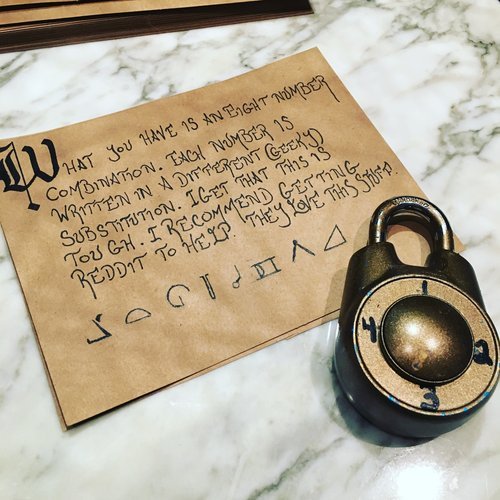 What you have is an eight number
combination. Each number is
written in a different (geeky)
substitution. I get that this is
tough. I recommend getting
Reddit to help. They love this stuff.
1
2
3
4